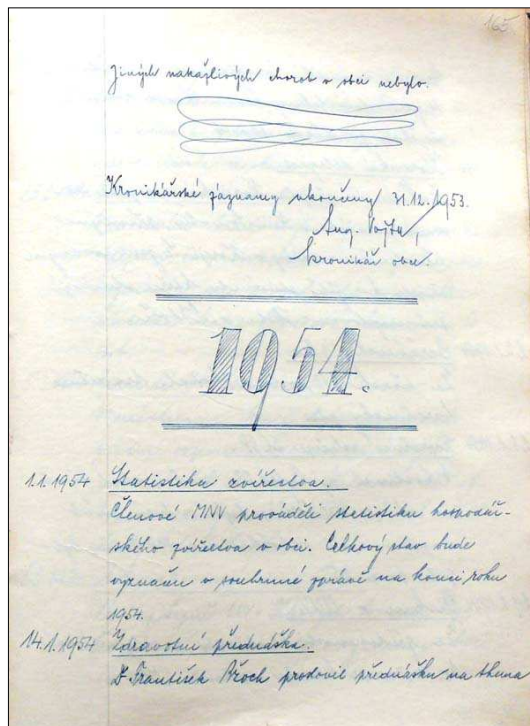 165
Jiných nakažlivých chorob v obci nebylo.
Kronikářské záznamy ukončeny 31.12.1953.
Aug. Vojta,
kronikář obce.
1954.
1.1.1954 Statistika zvířectva.
Členové MNV prováděli statistiku hospodář-
ského zvířectva v obci. Celkový stav bude
vyznačen v souhrnné zprávě na konci roku
1954.
14.1.1954 Zdravotní přednáška.
Dr František prodovil přednášku na thema